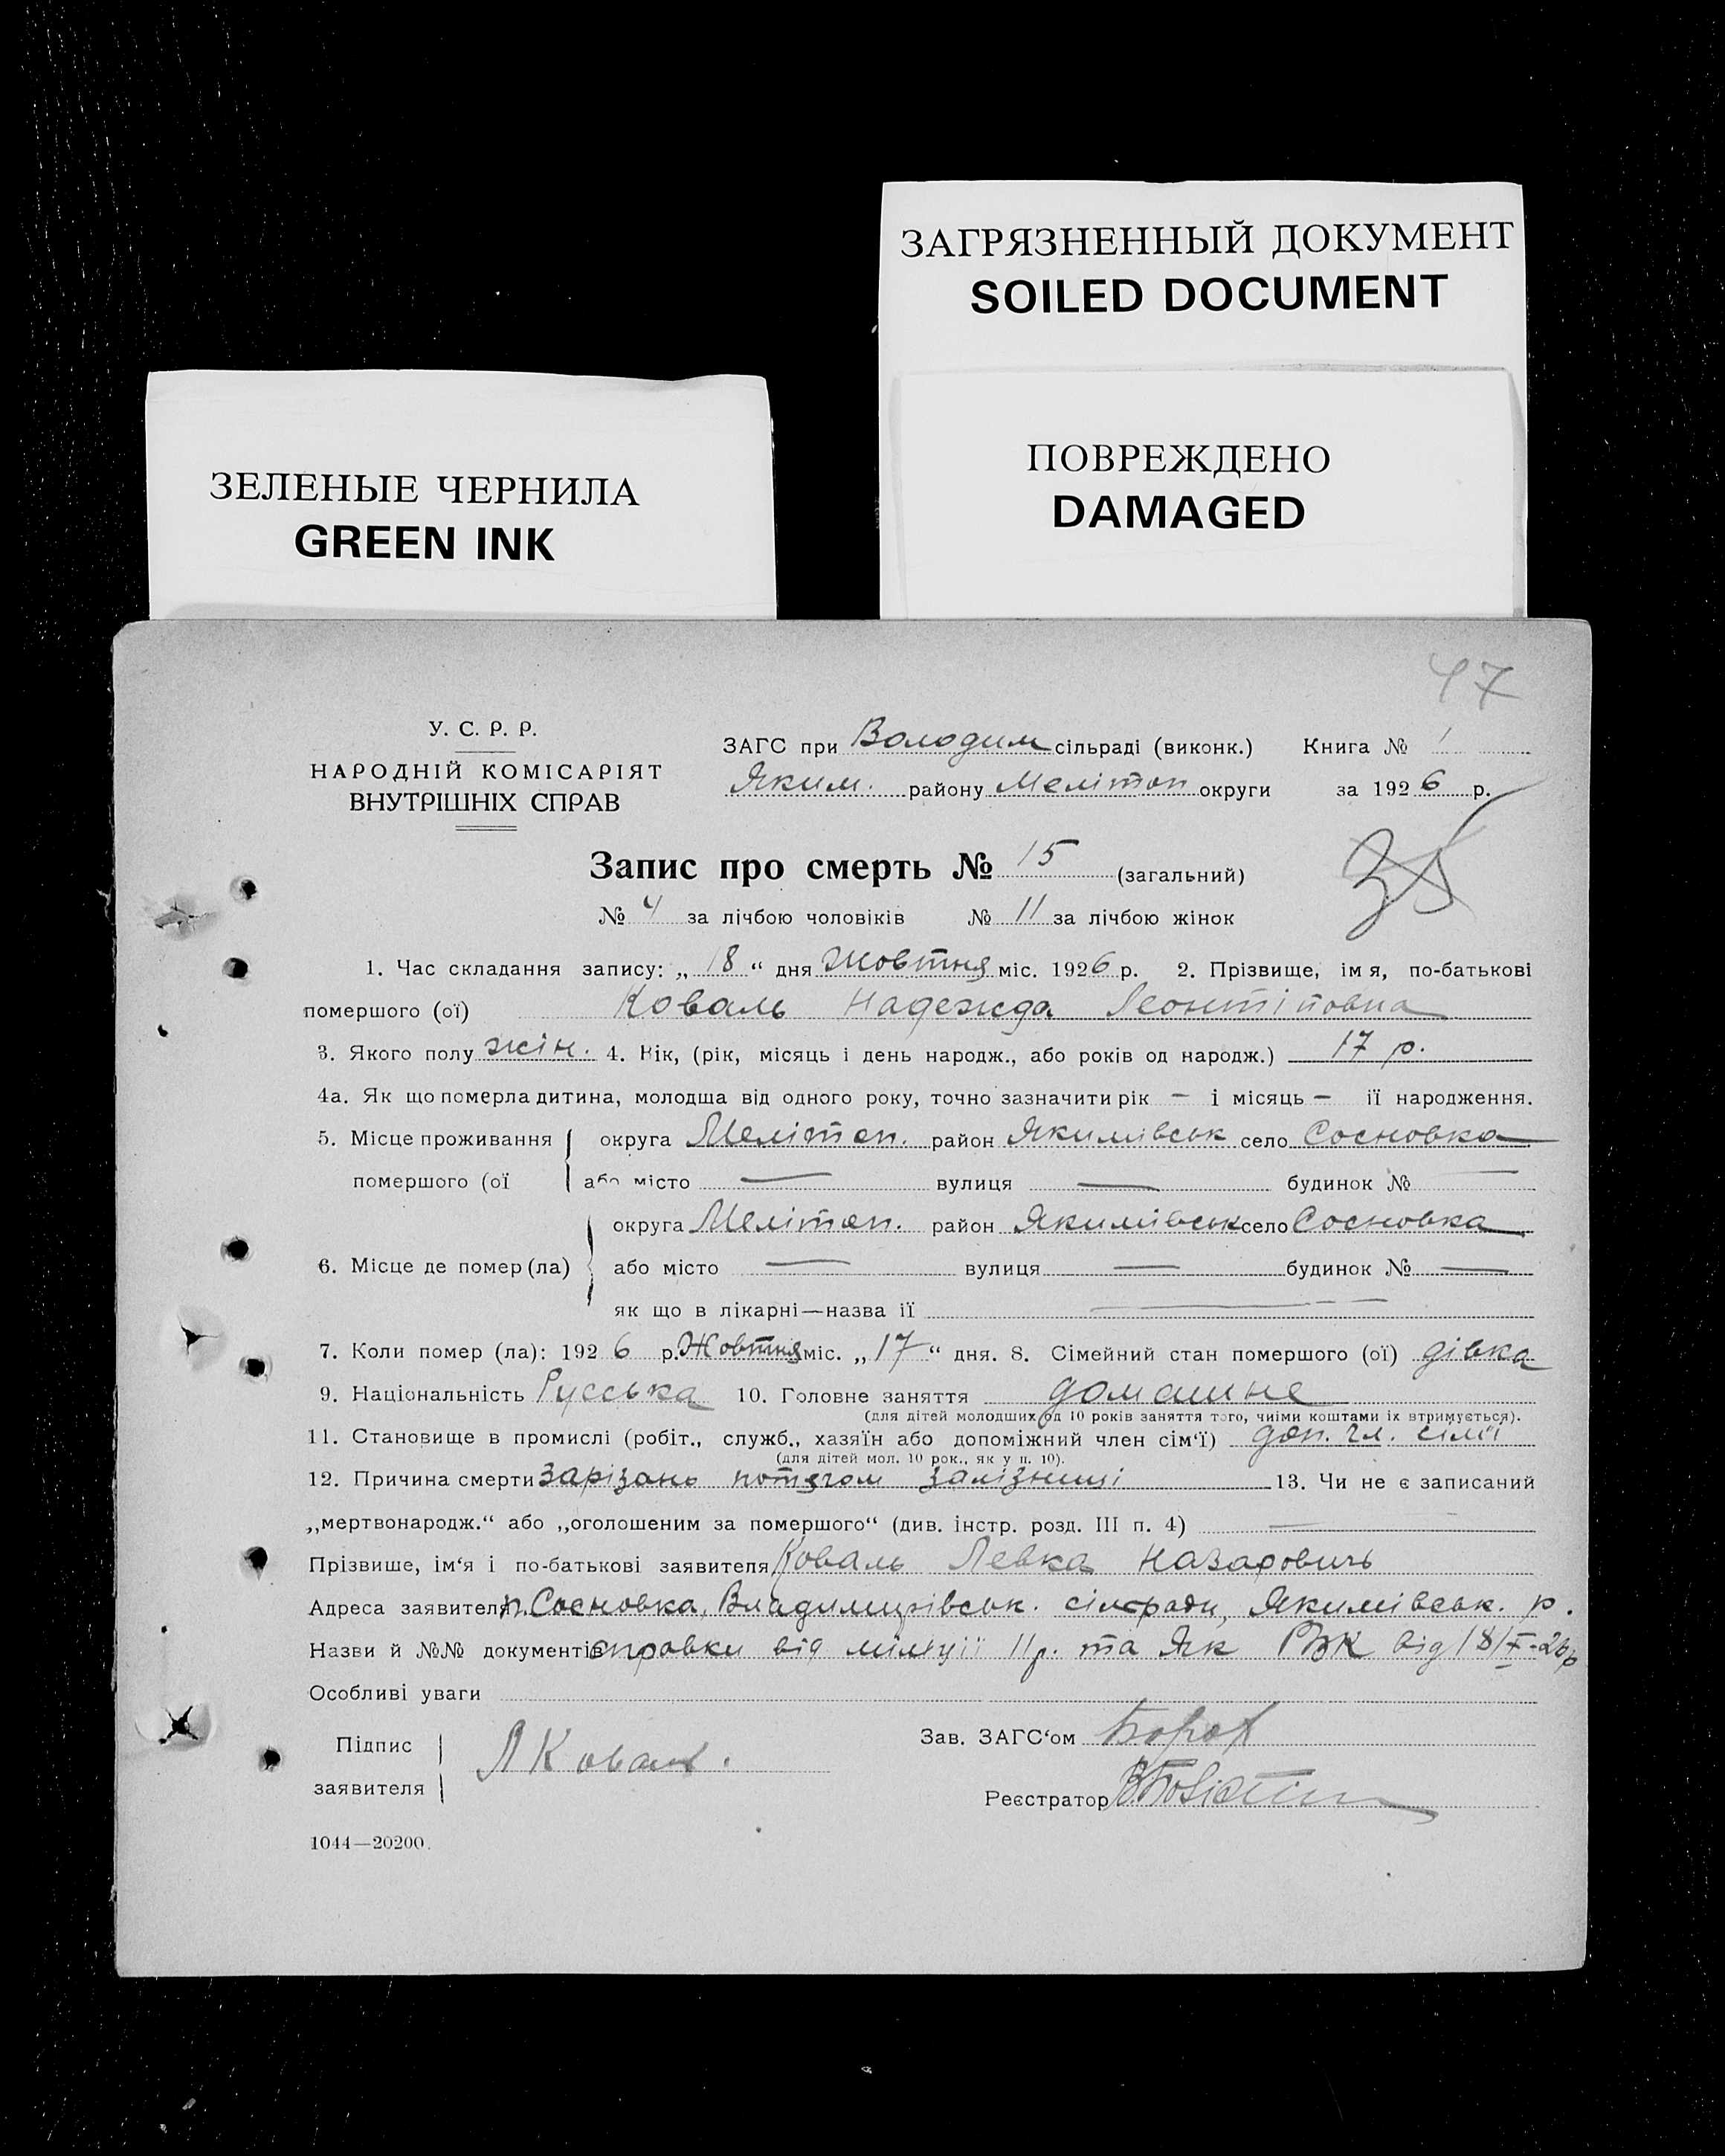 ЗАГРЯЗНЕННЫЙ ДОКУМЕНТ
SOILED DOCUMENT
ПОВРЕЖДЕНО
DAMAGED
ЗЕЛЕНЫЕ ЧЕРНИЛА
GREEN INK
47
У. С. Р. Р.
НАРОДНІЙ КОМІСАРІЯТ
ВНУТРІШНІХ СПРАВ
ЗАГС при Володим сільраді (виконк.) Книга № 1
Яким. району Мелітоп округи за 1926 р.
Запис про смерть № 15 (загальний)
№ 4 за лічбою чоловіків № 11 за лічбою жінок
1. Час складання запису: „18“ дня Жовтня міс. 1926 р. 2. Прізвище, імя, по-батькові
помершого (ої) Коваль Надежда
3. Якого полу жін. 4. Вік, (рік, місяць і день народж., або років од народж.) 17 р.
4а. Як що померла дитина, молодша від одного року, точно зазначити рік – і місяць – її народження.
5. Місце проживання округа Мелітоп. район Якимівськ село Сосновка
помершого (ої або місто — вулиця — будинок № —
округа Мелітоп. район Якимівськ село Сосновка
6. Місце де помер (ла) або місто — вулиця — будинок № —
як що в лікарні—назва її —
7. Коли помер (ла): 1926 р. Жовтня міс. „17“ дня. 8. Сімейний стан помершого (ої) дівка
9. Національність Русська 10. Головне заняття домашне
(для дітей молодших од 10 років заняття того, чиїми коштами їх втримується).
11. Становище в промислі (робіт., служб., хазяїн або допоміжний член сім‘ї) доп. чл. сімі
(для дітей мол. 10 рок., як у п. 10).
12. Причина смерти зарізано потягом залізниці 13. Чи не є записаний
„мертвонародж.“ або „оголошеним за помершого“ (див. інстр. розд. III п. 4) —
Прізвище, ім‘я і по-батькові заявителя Коваль Левка Назарович
Адреса заявителя п. Сосновка, Владимирівськ. сільради, Якимівськ. р.
Назви й №№ документів справки від міліції 11 р. та Як РВК від 18/X-26 р
Особливі уваги
Підпис
заявителя Л Коваль.
Зав. ЗАГС‘ом
Реєстратор
1044—20200.